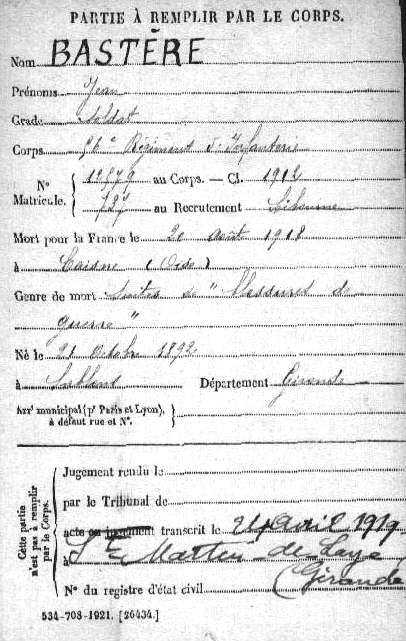 PARTIE À REMPLIR PAR LE CORPS.
Nom BASTÈRE
Prénoms Jean
Grade Soldat
Corps Régiment d'Infanterie
N° 12579 au Corps. — Cl. 1912
Matricule. 727 au Recrutement Libourne
Mort pour la France le 20 août 1918
à Caisne (Oise)
Genre de mort Suites de "blessures de
guerre"
Né le 21 Octobre 1892
à Sablons Département Gironde
Arr' municipal (p' Paris et Lyon),
à défaut rue et N°.
Cette partie n'est pas à remplir par le Corps.
Jugement rendu le
par le Tribunal de
acte ou jugement transcrit le 24 avril 1919
à St Martin-de-Laye
(Gironde
N° du registre d'état civil
534-708-1921. [26434.]